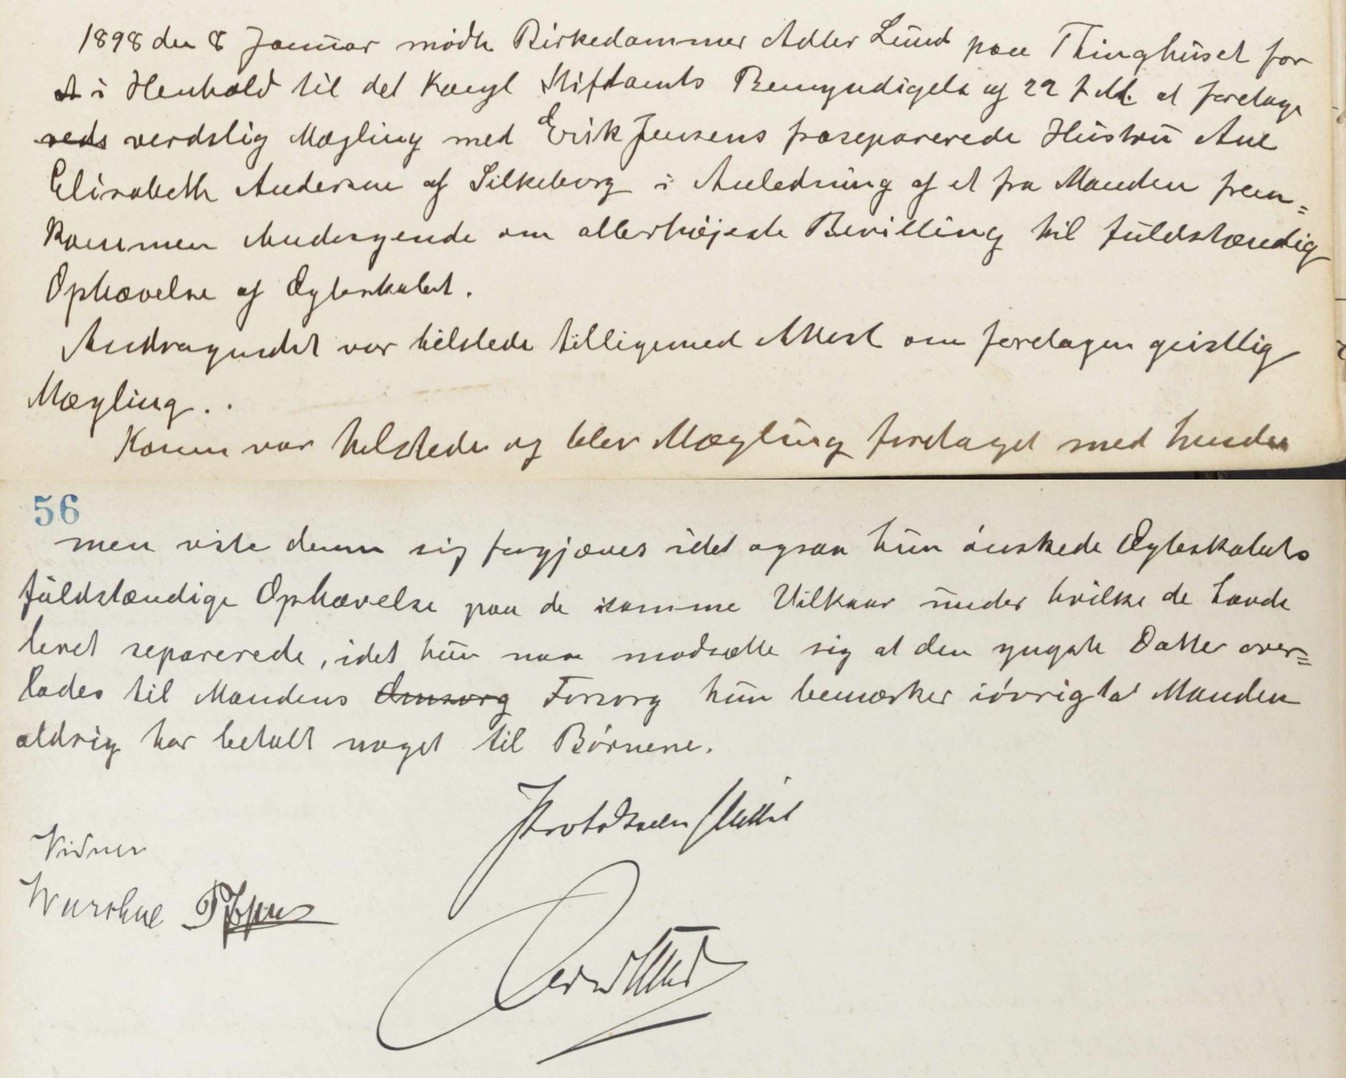 1898 den 8 Januar mødte Birkedommer Adler Lund paa Thinghuset for
at i Henhold til det kongl Stiftamts Bemyndigelse af 22 f.M. at foretage
verdslig Mægling med Erik Jensens fraseparerede Hustru Ane
Elisabeth Andersen af Silkeborg i Anledning af et fra Manden frem=
kommen Andragende om allerhøjeste Bevilling til fuldstændig
Ophævelse af Ægteskabet.
Andragendet var tilstede tilligemed Attest om foretagen geistlig
Mægling..
Konen var tilstede og blev Mægling foretaget med hende
56
men viste denne sig forgjæves idet ogsaa hun ønskede Ægteskabets
fuldstændige Ophævelse paa de samme Vilkaar under hvilke de havde
levet separerede, idet hun maa modsætte sig at den yngste Datter over=
lades til Mandens Omsorg Forsorg hun bemærker iøvrigt at Manden
aldrig har betalt noget til Børnene.
Protokollen sluttet
Vidner